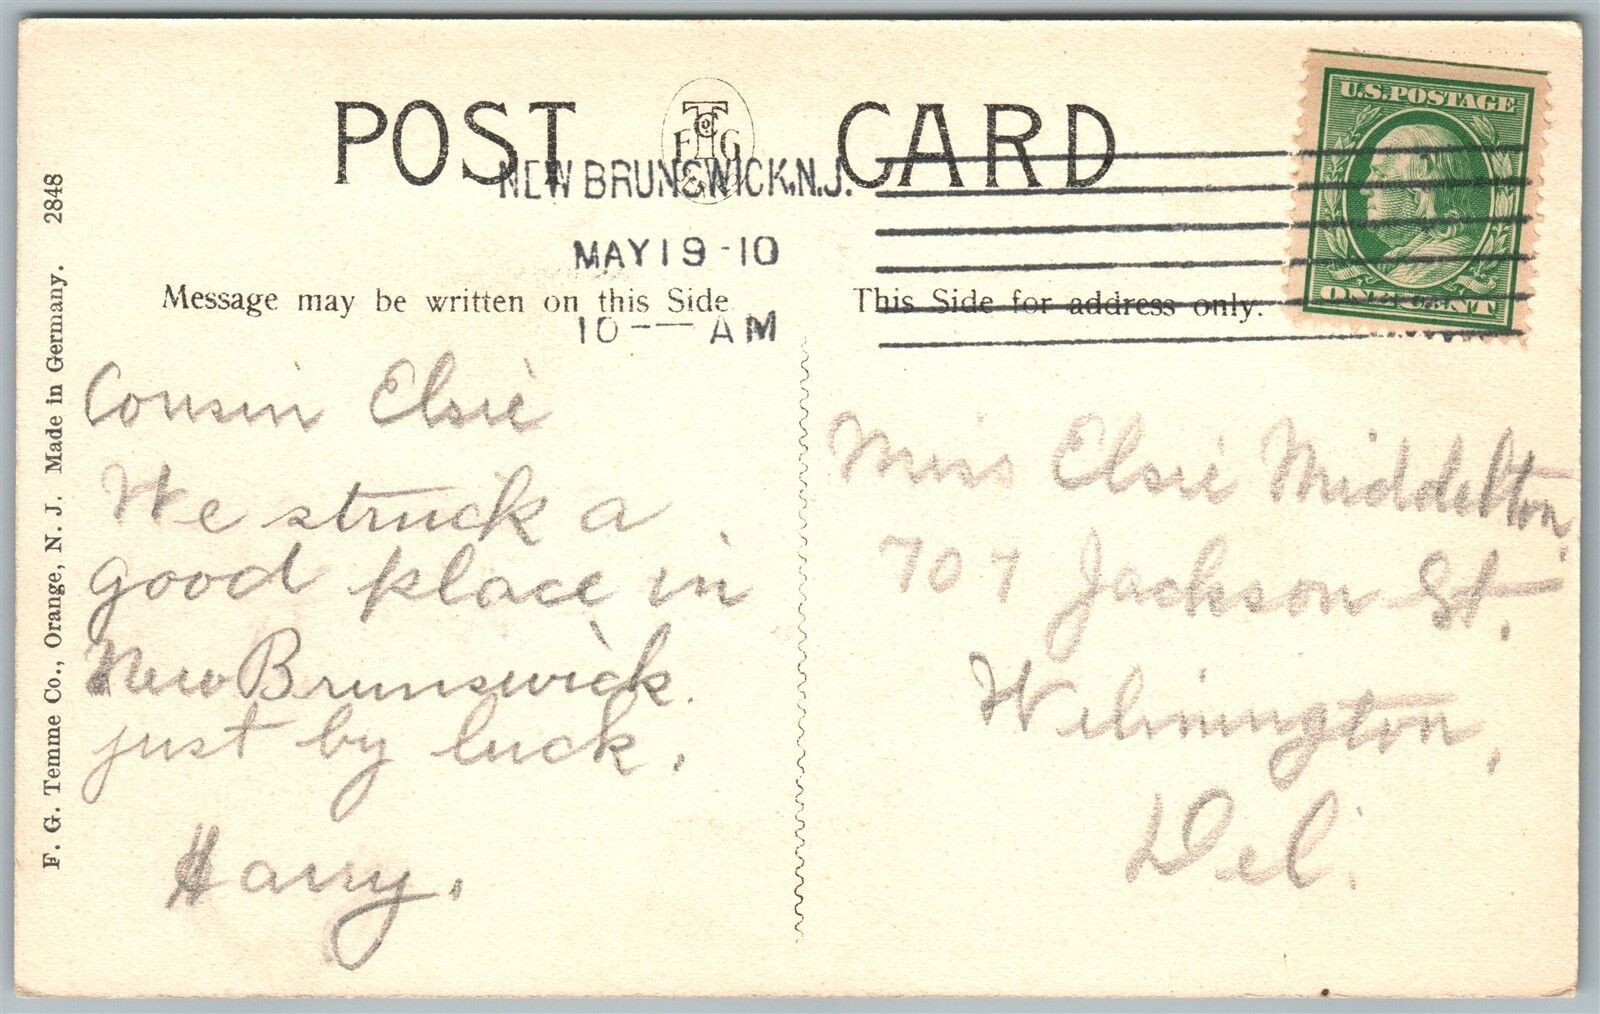 POST CARD
F T Co G
NEW BRUNSWICK, N.J.
MAY 19 - 10
10 — AM
U.S. POSTAGE
ONE CENT
Message may be written on this Side
This Side for address only.
F. G. Temme Co., Orange, N. J. Made in Germany. 2848
Cousin Elsie
We struck a
good place in
New Brunswick.
just by luck.
Harry.
Miss Elsie Middleton
707 Jackson St.
Wilmington,
Del.